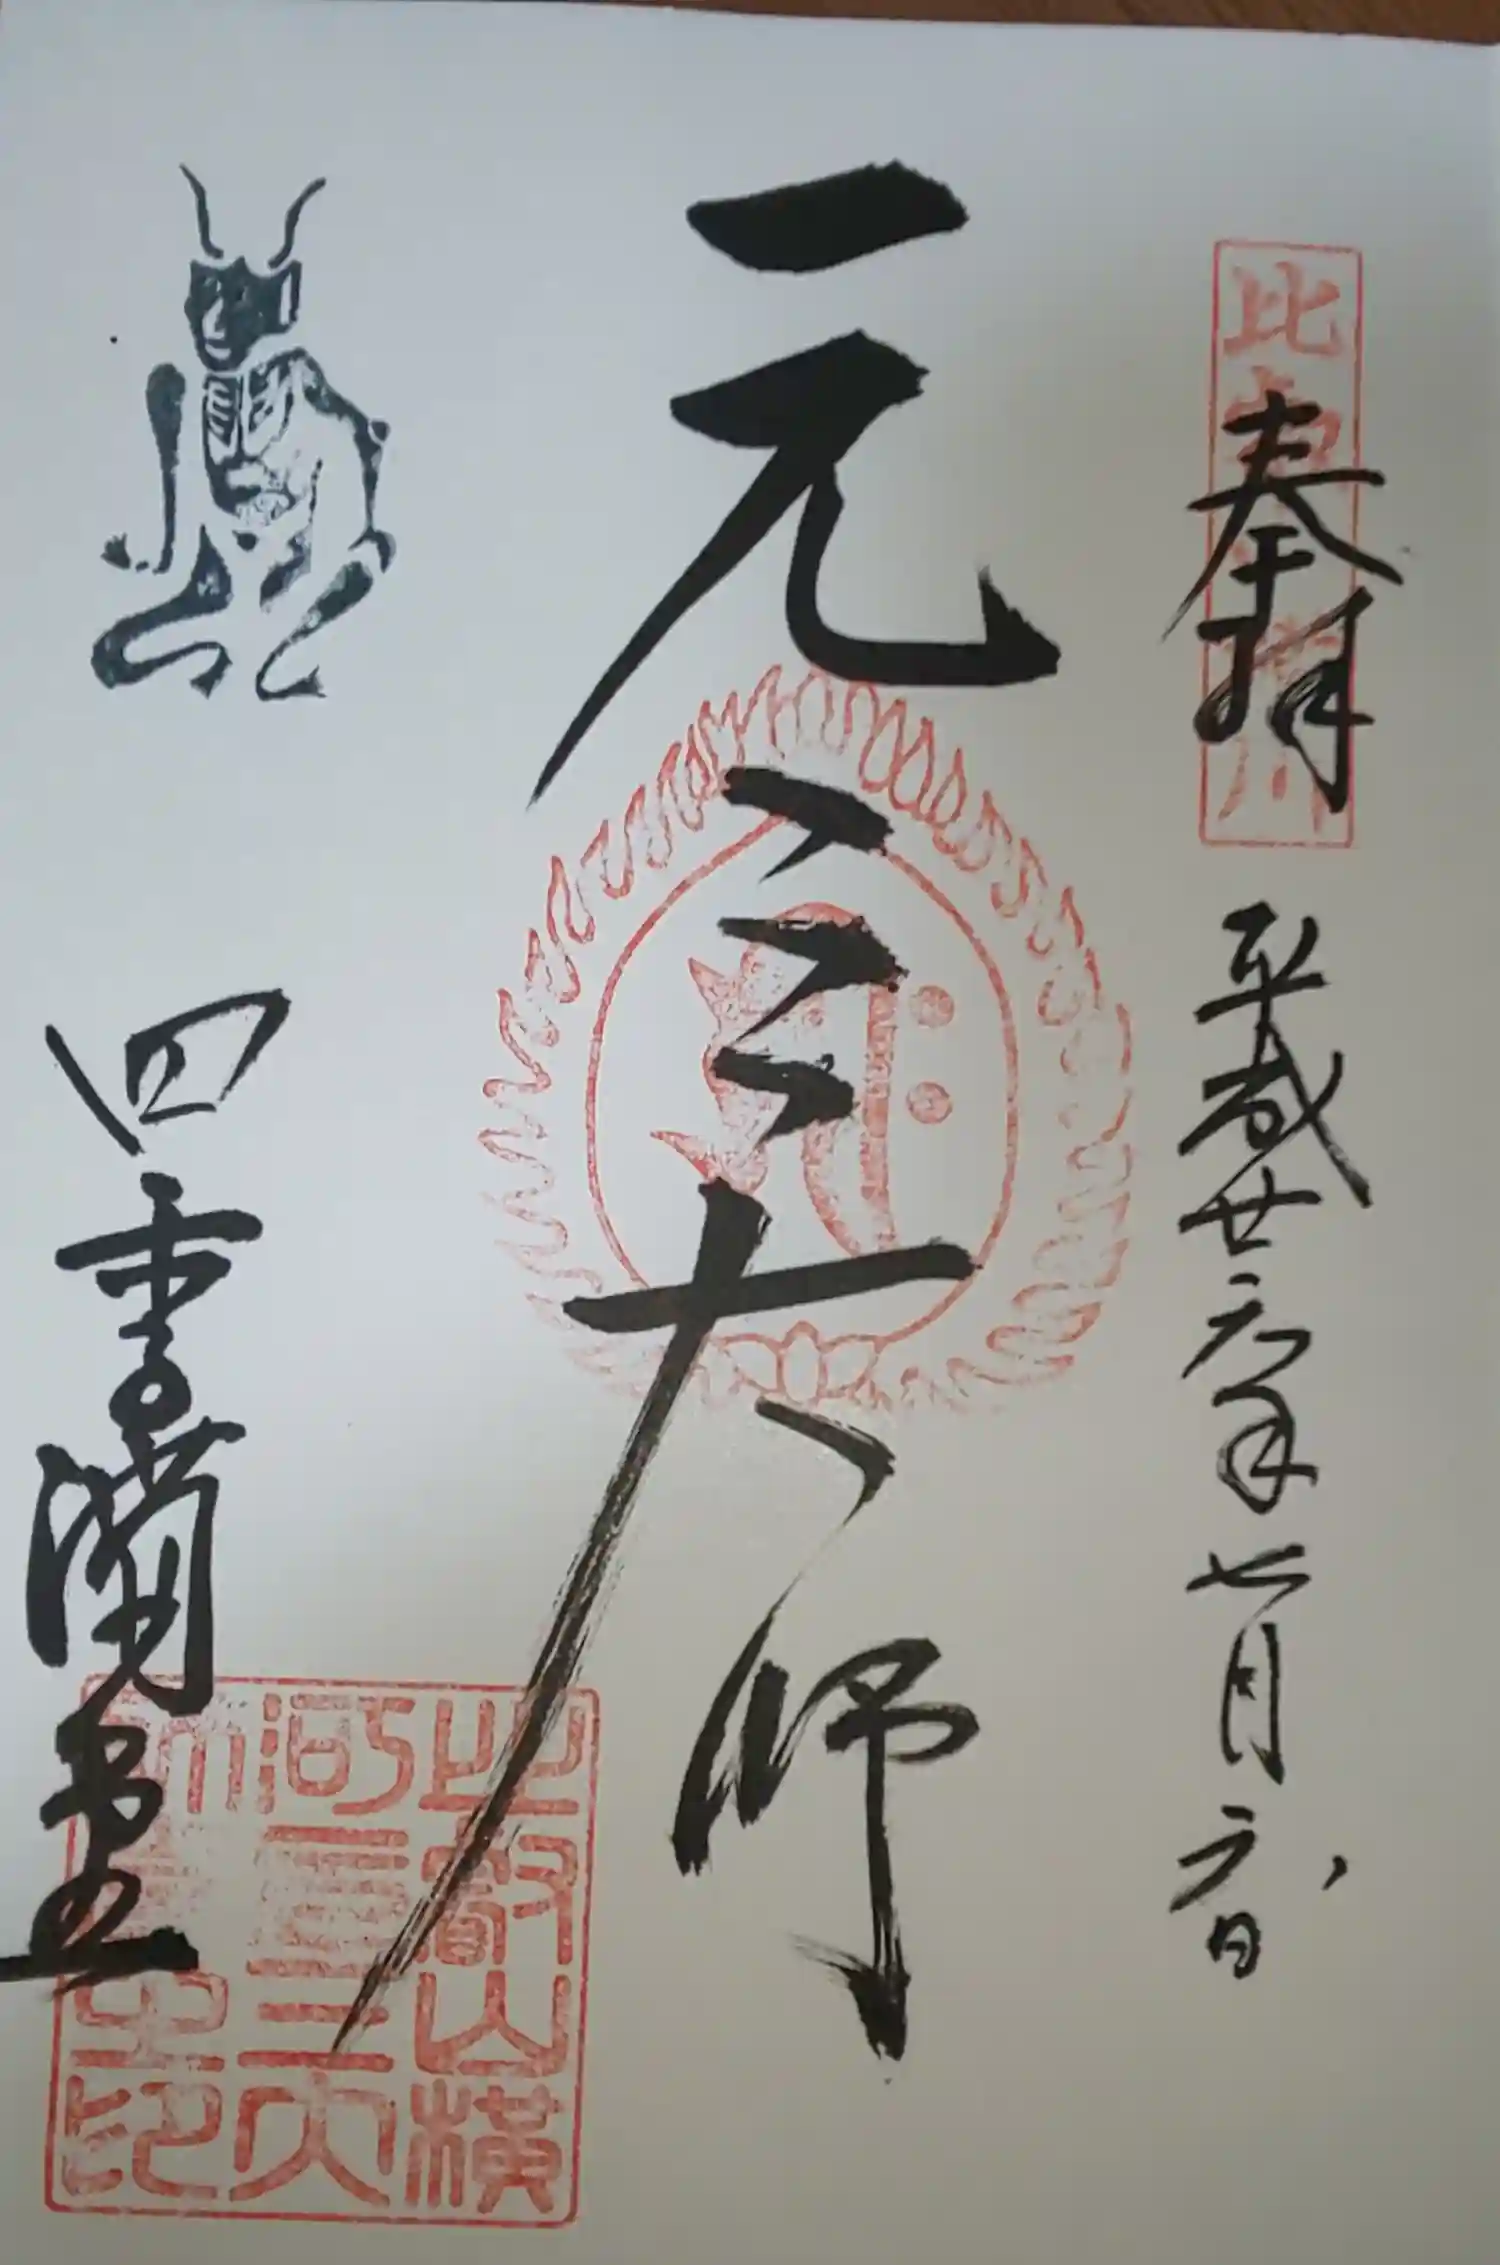 比叡山横川
奉拝 平成廿六年七月六日
元三大師
四季講堂
比叡山横
河元三大